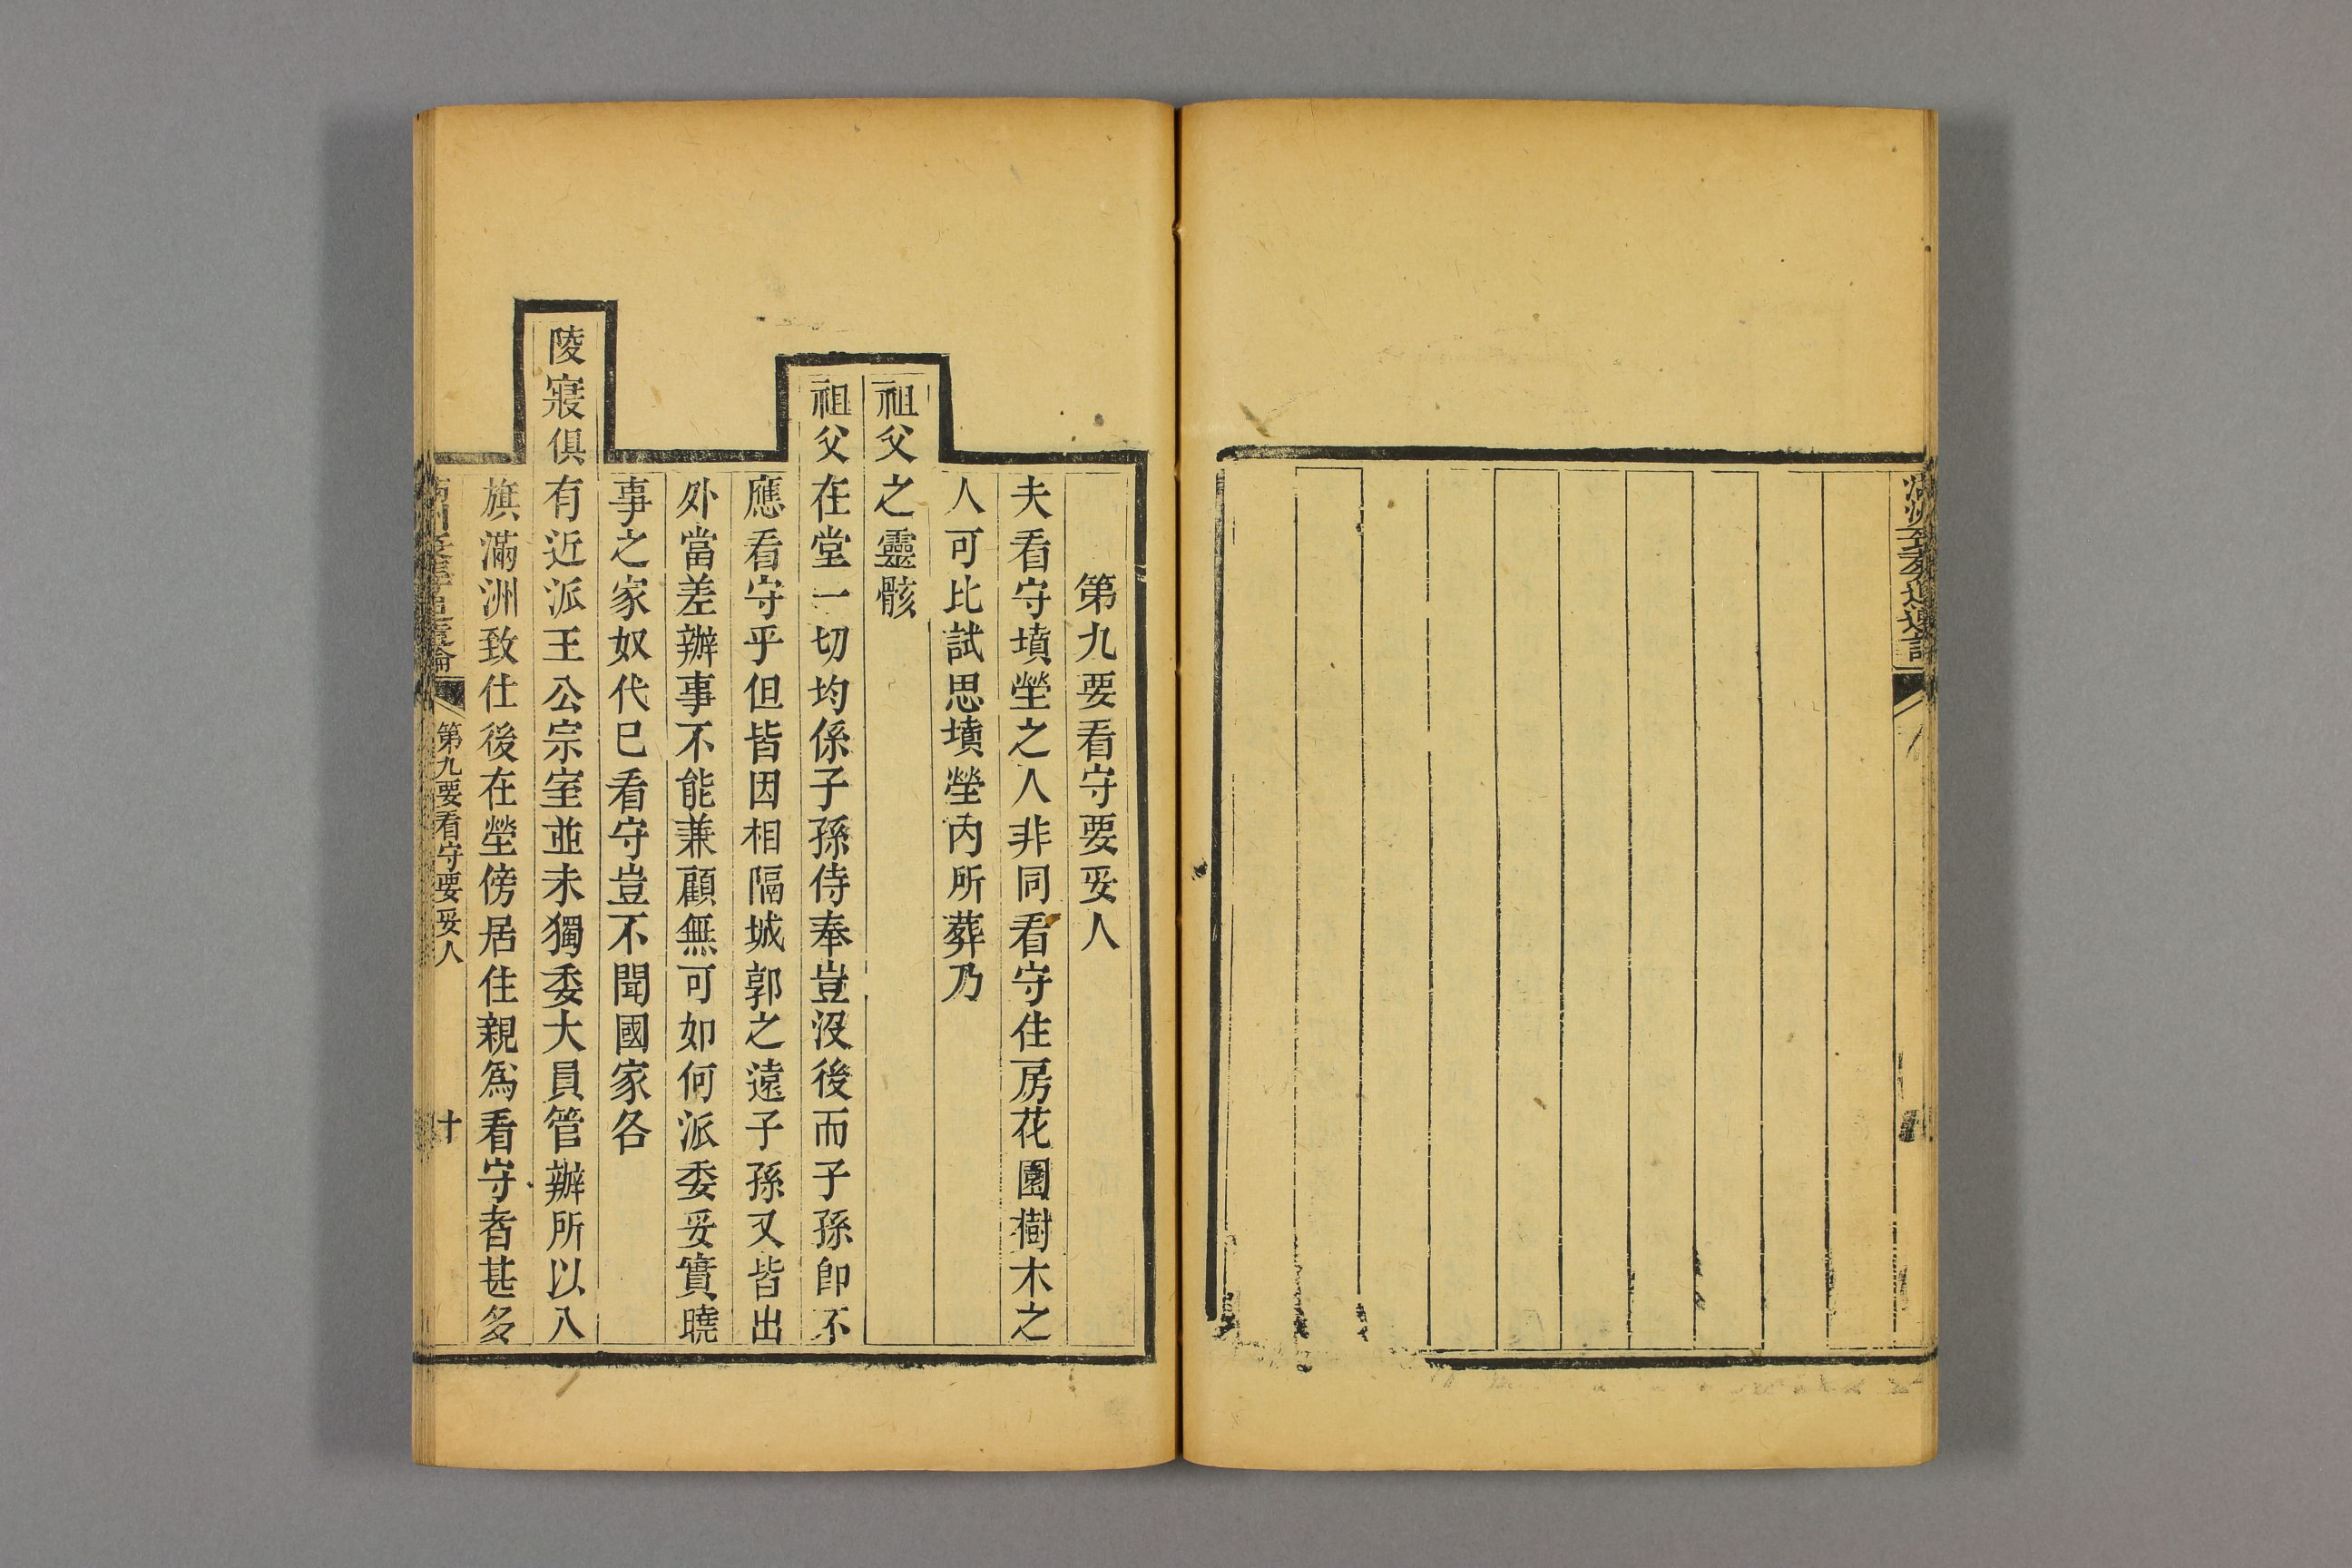 第九要看守要妥人
夫看守墳塋之人非同看守住房花園樹木之
人可比試思墳塋內所葬乃
祖父之靈骸
祖父在堂一切均係子孫侍奉豈沒後而子孫卽不
應看守乎但皆因相隔城郭之遠子孫又皆出
外當差辦事不能兼顧無可如何派委妥實曉
事之家奴代巳看守豈不聞國家各
陵寢俱有近派王公宗室並未獨委大員管辦所以八
旗滿洲致仕後在塋傍居住親爲看守者甚多
第九要看守要妥人
十